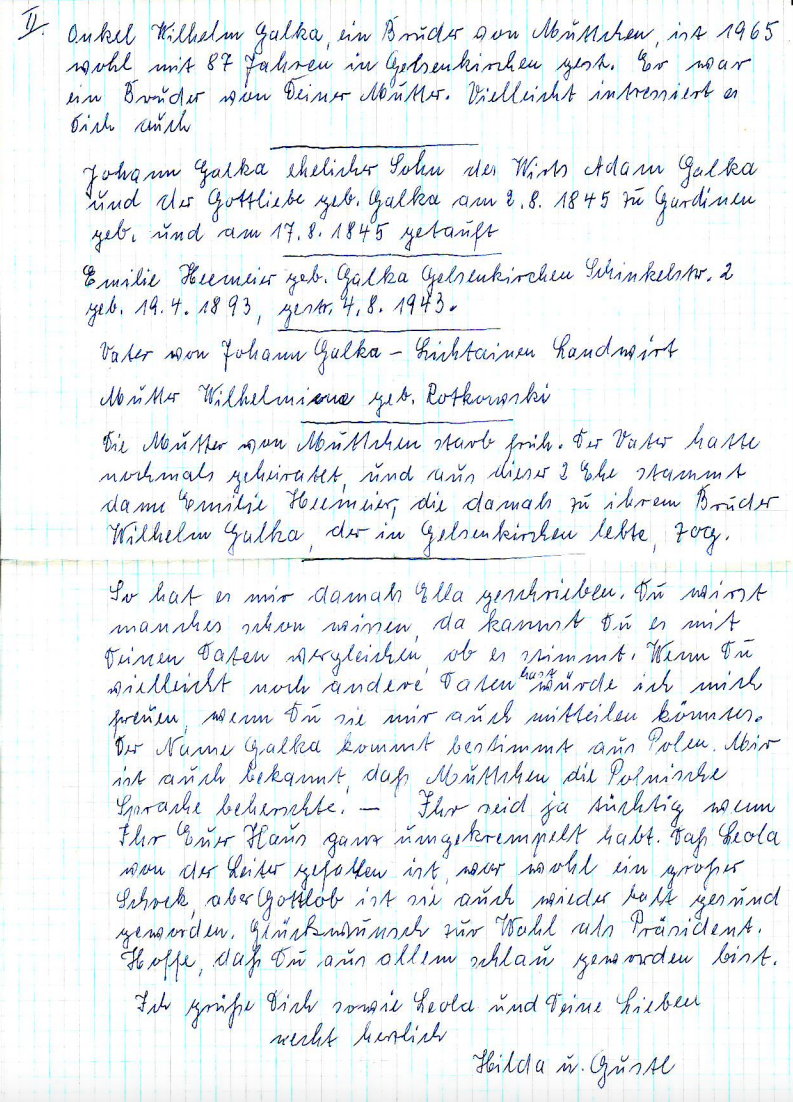 II.
Onkel Wilhelm Galka, ein Bruder von Muttchen, ist 1965
wohl mit 87 Jahren in Gelsenkirchen gest. Er war
ein Bruder von Deiner Mutter. Vielleicht intressiert es
Dich auch
Johann Galka ehelicher Sohn des Wirts Adam Galka
und der Gottliebe geb. Galka am 2.8.1845 zu Gardinen
geb. und am 17.8.1845 getauft
Emilie Heemeier geb. Galka Gelsenkirchen Schinkelstr. 2
geb. 19.4.1893, gestr. 4.8.1943.
Vater von Johann Galka – Lichtainen Landwirt
Mutter Wilhelmine geb. Rotkowski
Die Mutter von Muttchen starb früh. Der Vater hatte
nochmals geheiratet, und aus dieser 2 Ehe stammt
dann Emilie Heemeier, die damals zu ihrem Bruder
Wilhelm Galka, der in Gelsenkirchen lebte, zog.
So hat es mir damals Ella geschrieben. Du wirst
manches schon wissen, da kannst Du es mit
Deinen Daten vergleichen, ob es stimmt. Wenn Du
vielleicht noch andere Daten hast würde ich mich
freuen, wenn Du sie mir auch mitteilen könntes.
Der Name Galka kommt bestimmt aus Polen. Mir
ist auch bekannt, daß Muttchen die Polnische
Sprache beherschte. — Ihr seid ja tüchtig wenn
Ihr Euer Haus ganz umgekrempelt habt. Daß Leola
von der Leiter gefallen ist, war wohl ein großer
Schrek, aber Gottlob ist sie auch wieder balt gesund
geworden. Glückwunsch zur Wahl als Präsident.
Hoffe, daß Du aus allem schlau geworden bist.
Ich grüße Dich sowie Leola und Deine Lieben
recht herzlich
Hilda u. Gustl